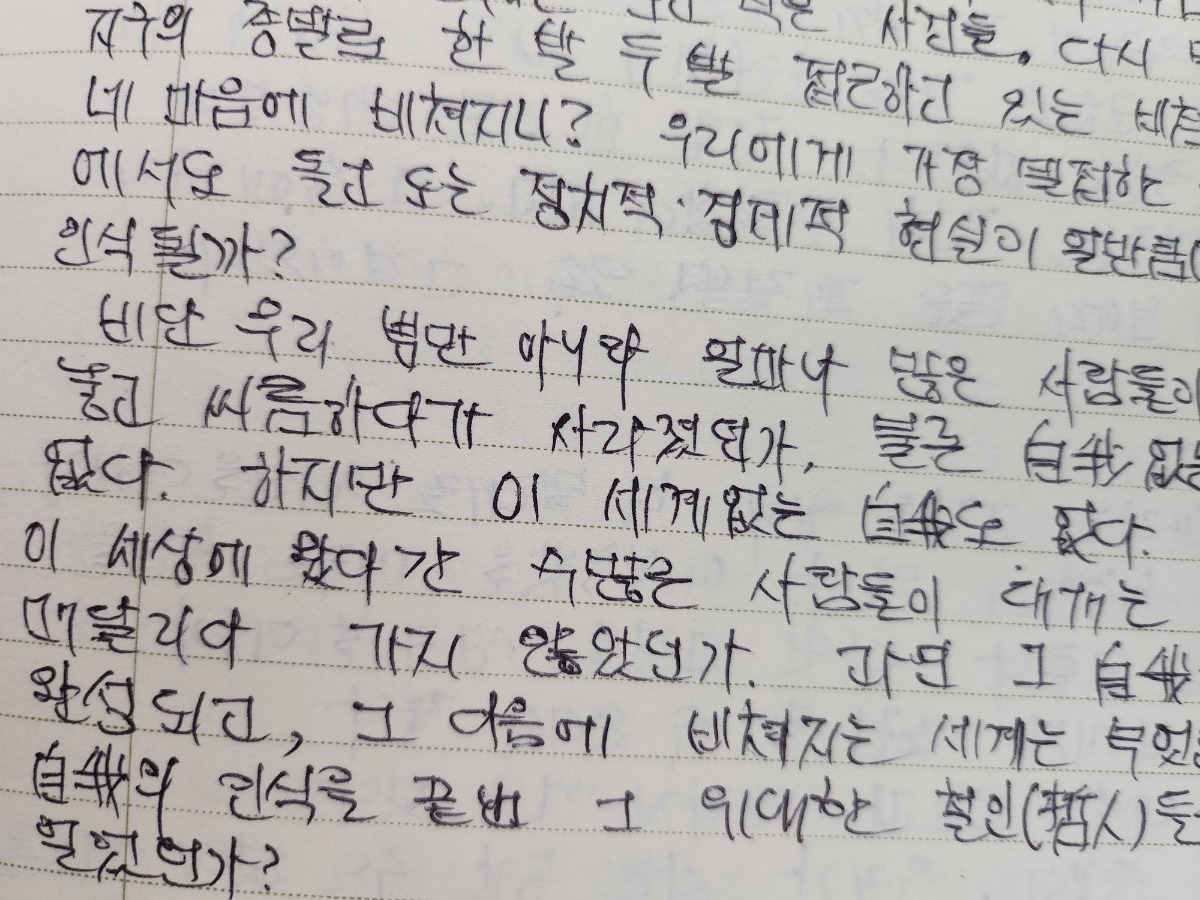 사건들. 다시
지구의 종말로 한 발 두 발 접근하고 있는
네 마음에 비쳐지니? 우리에게 가장 밀접한
에서도 들고 도는 정치적·경제적 현실이 일반
인식될까?
비단 우리 뿐만 아니라 얼마나 많은 사람들이
놓고 씨름하다가 사라졌던가. 물론 自我 없는
없다. 하지만 이 세계없는 自我도 없다.
이 세상에 왔다 간 수많은 사람들이 대개는
매달리다 가지 않았던가. 과연 그 自我
완성되고, 그 다음에 비쳐지는 세계는
自我의 인식을 끝낸 그 위대한 철인(哲人)들
일었던가?